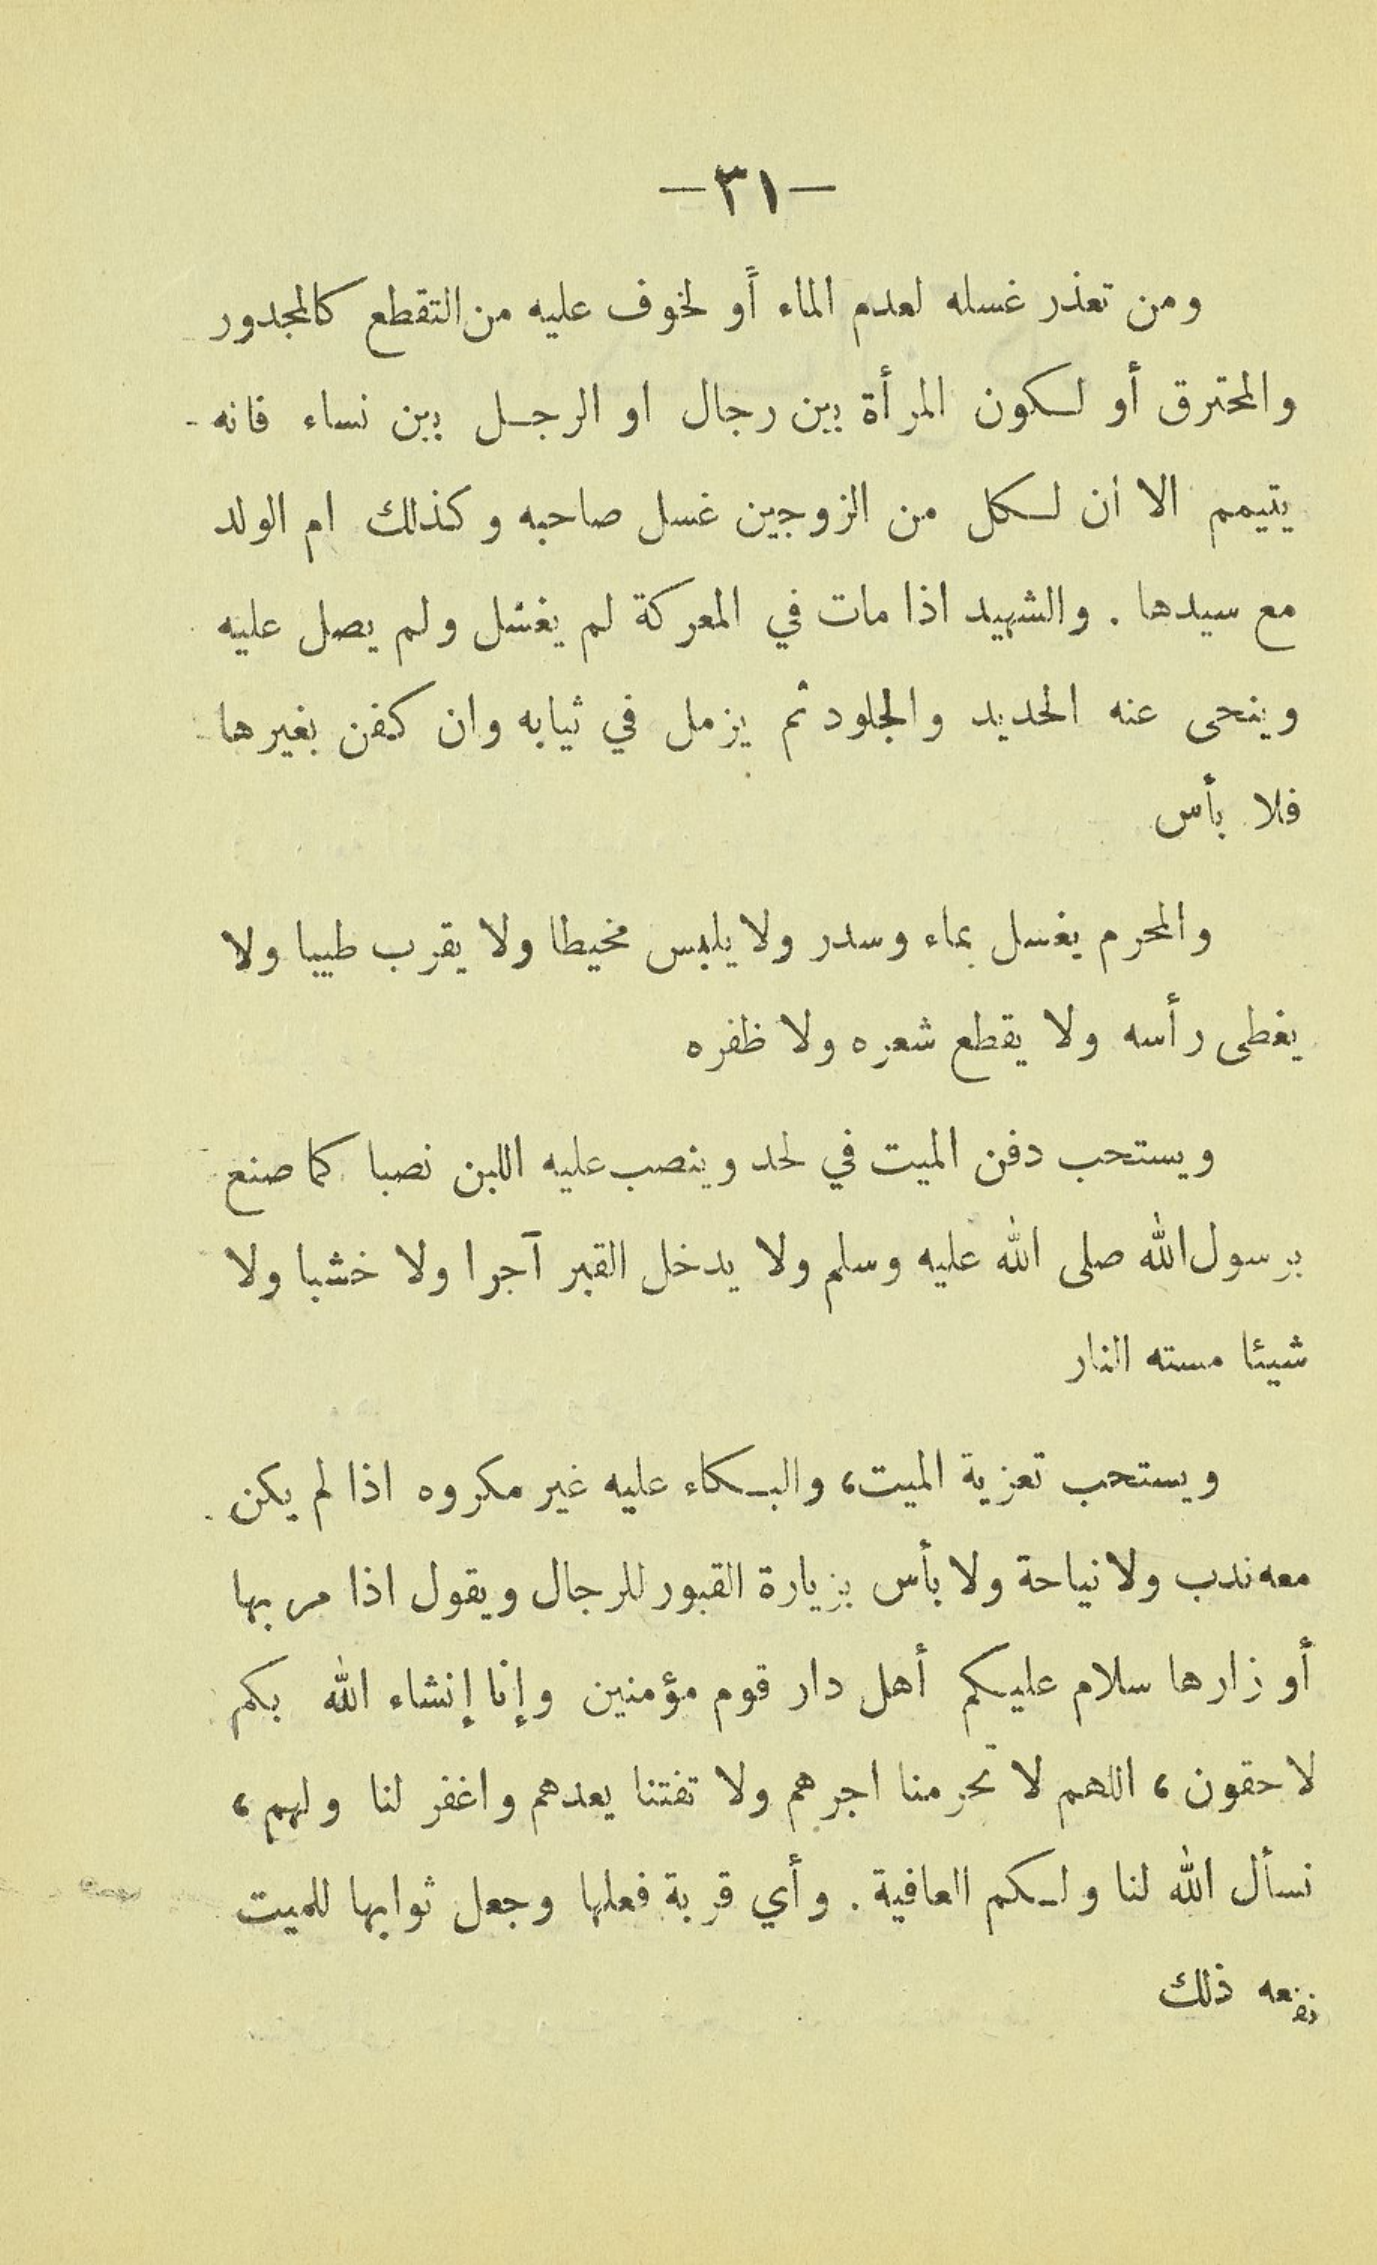 —٣١—
ومن تعذر غسله لعدم الماء أو لخوف عليه من التقطع كالمجدور
والمحترق أو لكون المرأة بين رجال او الرجل بين نساء فانه
يتيمم الا ان لكل من الزوجين غسل صاحبه وكذلك ام الولد
مع سيدها . والشهيد اذا مات في المعركة لم يغسل ولم يصل عليه
وينحى عنه الحديد والجلود ثم يزمل في ثيابه وان كفن بغيرها
فلا بأس
والمحرم يغسل بماء وسدر ولا يلبس مخيطا ولا يقرب طيبا ولا
يغطى رأسه ولا يقطع شعره ولا ظفره
ويستحب دفن الميت في لحد وينصب عليه اللبن نصبا كما صنع
برسول الله صلى الله عليه وسلم ولا يدخل القبر آجرا ولا خشبا ولا
شيئا مسته النار
ويستحب تعزية الميت، والبكاء عليه غير مكروه اذا لم يكن
معه ندب ولا نياحة ولا بأس بزيارة القبور للرجال ويقول اذا مر بها
أو زارها سلام عليكم أهل دار قوم مؤمنين وإنا إنشاء الله بكم
لاحقون، اللهم لا تحرمنا اجرهم ولا تفتنا يعدهم واغفر لنا ولهم،
نسأل الله لنا ولكم العافية . وأي قربة فعلها وجعل ثوابها للميت
نفعه ذلك